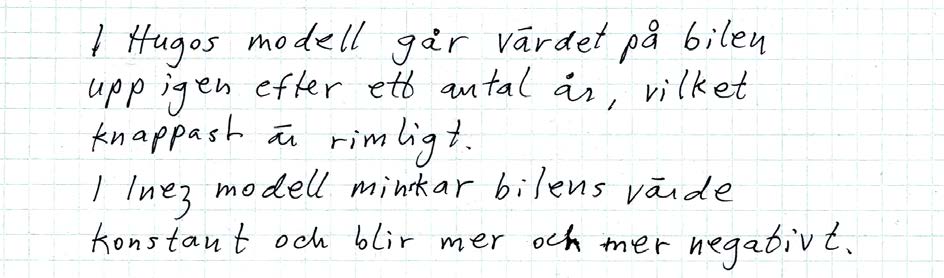 I Hugos modell går värdet på bilen
upp igen efter ett antal år, vilket
knappast är rimligt.
I Inez modell minskar bilens värde
konstant och blir mer och mer negativt.